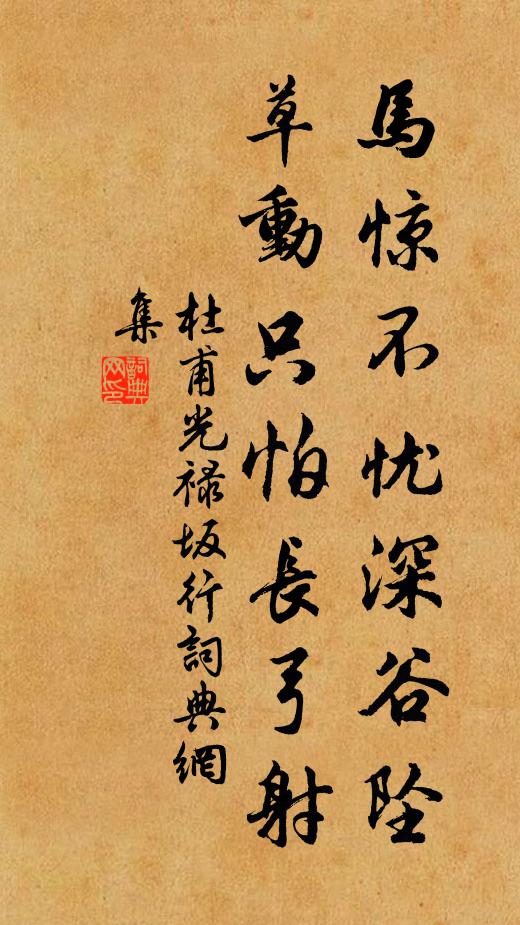 馬惊不忧深谷坠
草動只怕長弓射
杜甫光禄坂行詞典網
集
詞典网印